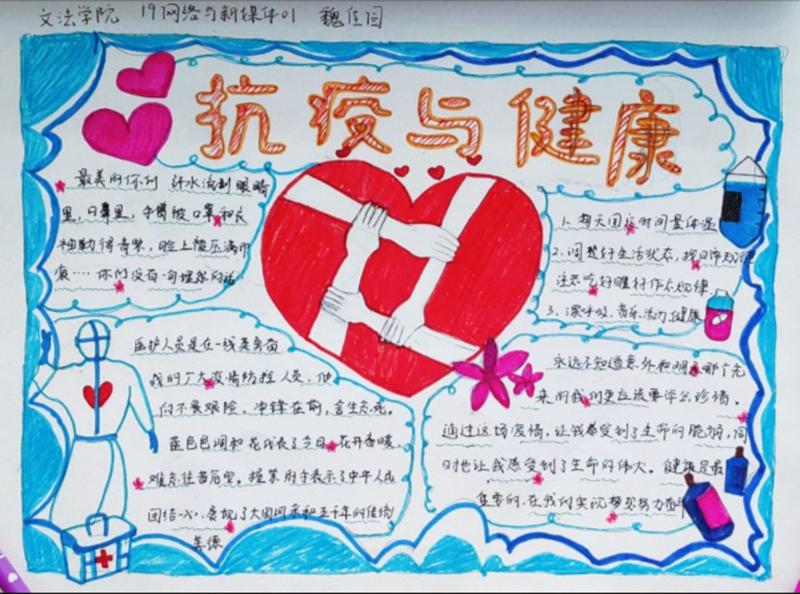 文法学院 19网络与新媒体01 魏佳园
抗疫与健康
最美的你们 汗水流到眼睛
里，口鼻里，手臂被口罩和衣
袖勒得青紫，脸上被压满巾
痕…… 你们没有一句埋怨的话
1. 每天固定时间量体温
2. 调整好生活状态，按日常规律
注意吃好睡好作息规律
3. 深呼吸，音乐活力，健康
医护人员是在一线英勇奋
战的广大疫情防控人员，他
们不畏艰险、冲锋在前，舍生忘死。
蓝色色调和花代表了今日花开春暖，
难忘往昔历空。握紧的手表示了中华人民
团结一心，展现了大国风采和五千年的传统
美德
永远不知道意外和明天哪个先
来的我们更应该要学会珍惜。
通过这场疫情，让我感受到了生命的脆弱，同
时也让我感受到了生命的伟大。健康是最
重要的，在我们实现梦想努力奋斗